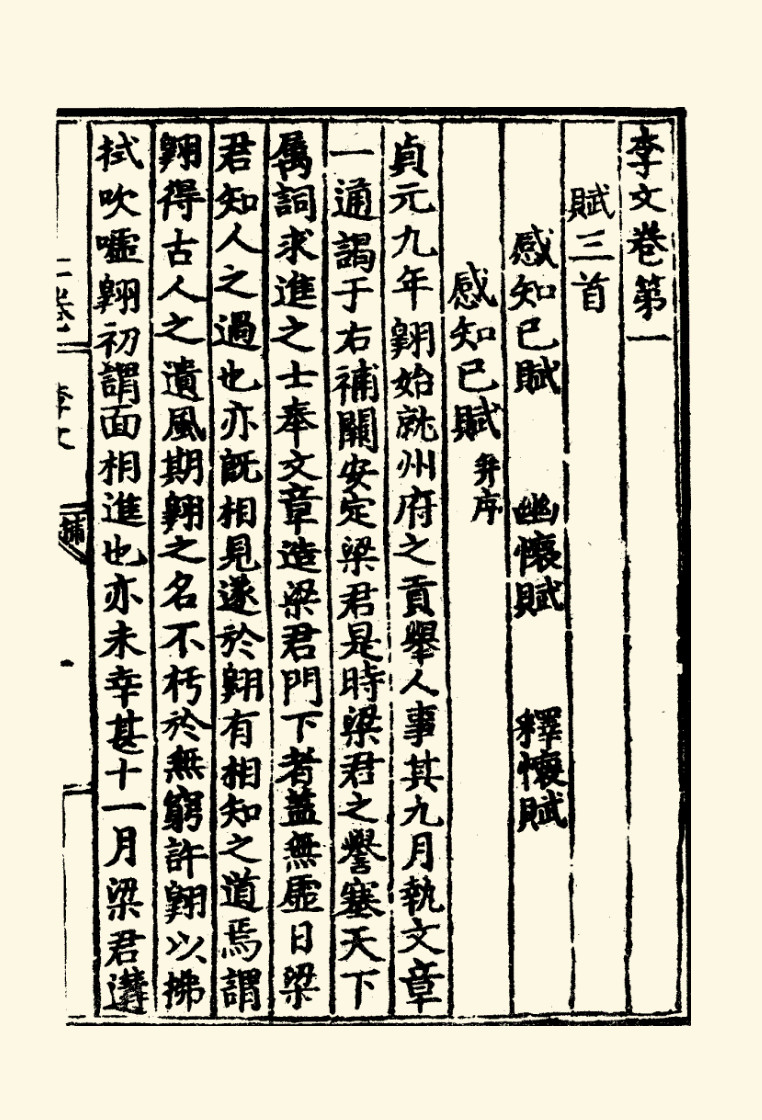 李文卷第一
賦三首
感知己賦　幽懷賦　釋懷賦
感知己賦 并序
貞元九年翺始就州府之貢舉人事其九月執文章
一通謁于右補闕安定梁君是時梁君之譽塞天下
属詞求進之士奉文章造梁君門下者蓋無虛日梁
君知人之過也亦旣相見遂於翺有相知之道焉謂
翺得古人之遺風期翺之名不朽於無窮許翺以拂
拭吹噓翺初謂面相進也亦未幸甚十一月梁君遘
李文